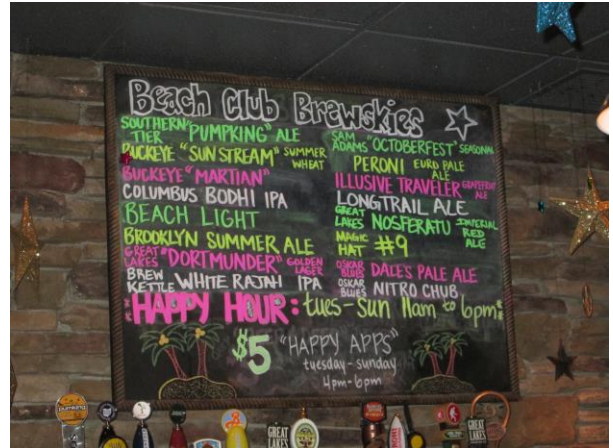 Beach Club Brewskies
SOUTHERN TIER "PUMPKING" ALE
BUCKEYE "SUN STREAM" SUMMER WHEAT
BUCKEYE "MARTIAN"
COLUMBUS BODHI IPA
BEACH LIGHT
BROOKLYN SUMMER ALE
GREAT LAKES "DORTMUNDER" GOLDEN LAGER
BREW KETTLE WHITE RAJAH IPA
SAM ADAMS "OCTOBERFEST" SEASONAL
PERONI EURO PALE ALE
ILLUSIVE TRAVELER GRAPEFRUIT ALE
LONGTRAIL ALE
GREAT LAKES NOSFERATU IMPERIAL RED ALE
MAGIC HAT #9
OSKAR BLUES DALE'S PALE ALE
OSKAR BLUES NITRO CHUB
HAPPY HOUR: tues-sun 11am to 6pm
$5 "HAPPY APPS"
tuesday-sunday
4pm-6pm
GREAT LAKES
GREAT LAKES